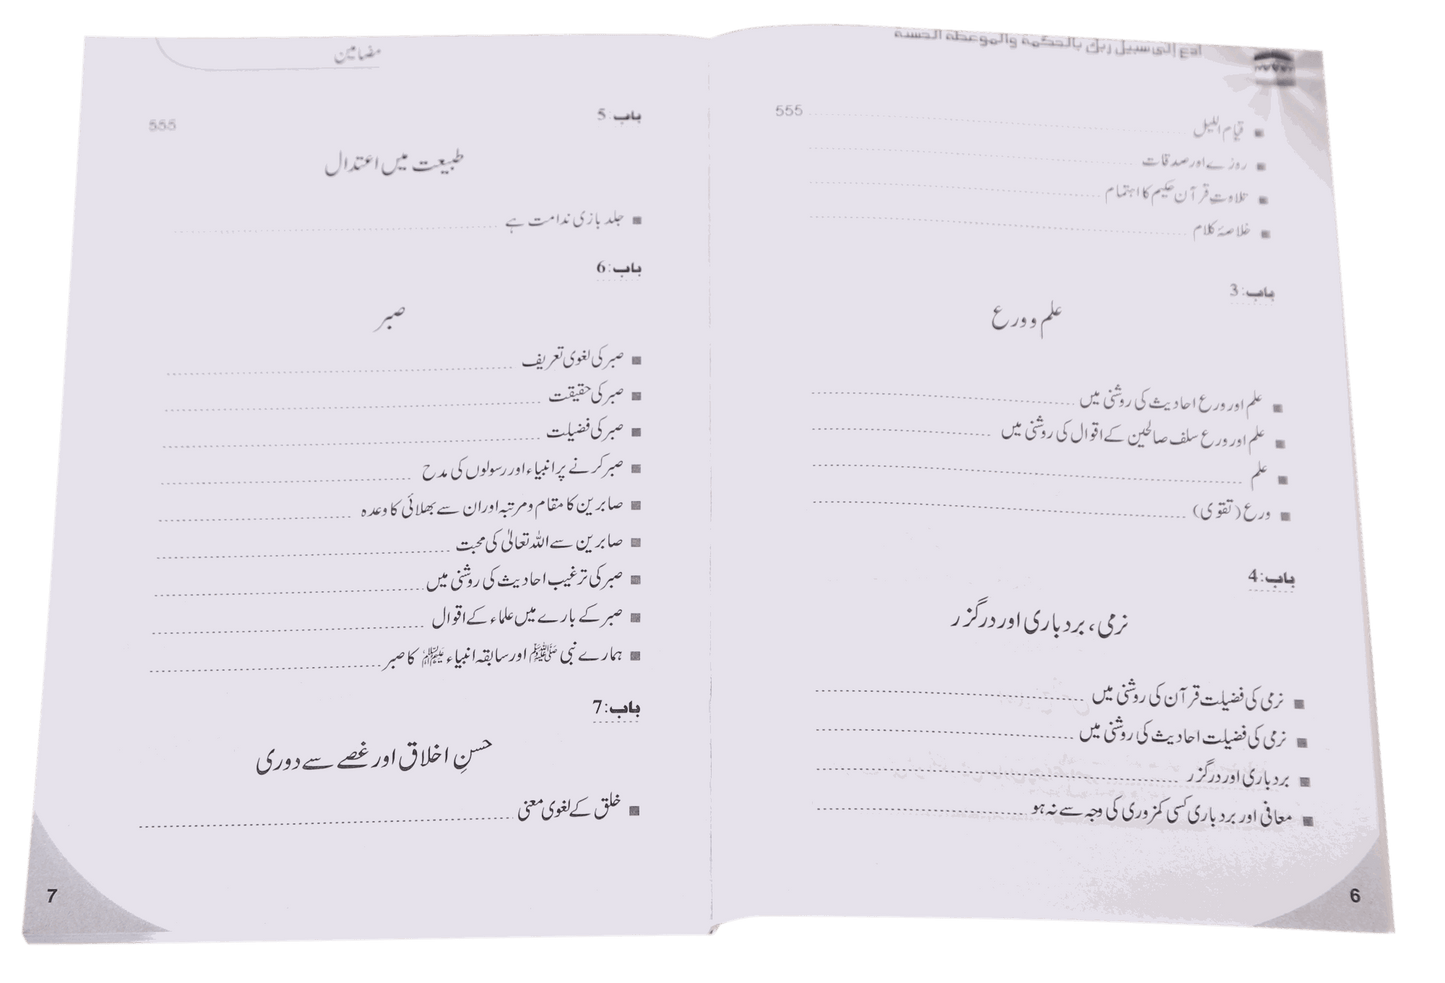 ادع إلى سبيل ربك بالحكمة والموعظة الحسنة
قیام اللیل 555
روزے اور صدقات
تلاوتِ قرآن حکیم کا اہتمام
خلاصۂ کلام
باب: 3
علم و ورع
علم اور ورع احادیث کی روشنی میں
علم اور ورع سلف صالحین کے اقوال کی روشنی میں
علم
ورع (تقویٰ)
باب: 4
نرمی، بردباری اور درگزر
نرمی کی فضیلت قرآن کی روشنی میں
نرمی کی فضیلت احادیث کی روشنی میں
بردباری اور درگزر
معافی اور بردباری کسی کمزوری کی وجہ سے نہ ہو
6
مضامین
باب: 5
555
طبیعت میں اعتدال
جلد بازی ندامت ہے
باب: 6
صبر
صبر کی لغوی تعریف
صبر کی حقیقت
صبر کی فضیلت
صبر کرنے پر انبیاء اور رسولوں کی مدح
صابرین کا مقام و مرتبہ اور ان سے بھلائی کا وعدہ
صابرین سے اللہ تعالیٰ کی محبت
صبر کی ترغیب احادیث کی روشنی میں
صبر کے بارے میں علماء کے اقوال
ہمارے نبی ﷺ اور سابقہ انبیاء علیہم السلام کا صبر
باب: 7
حسنِ اخلاق اور غصے سے دوری
خلق کے لغوی معنی
7